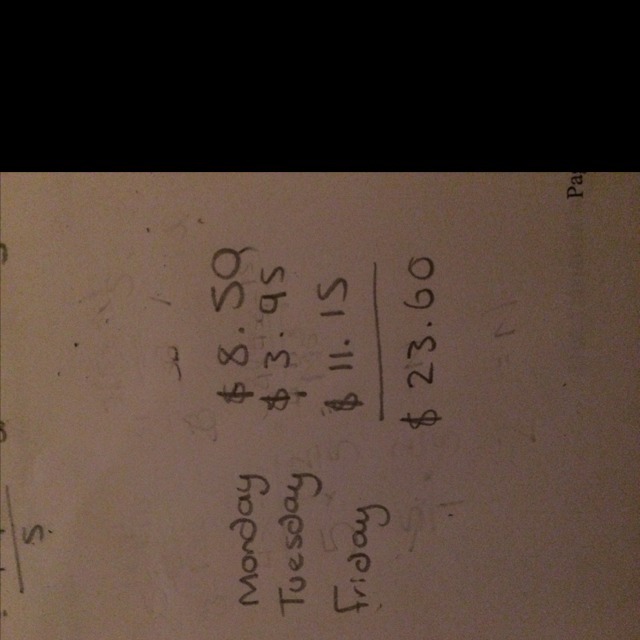 Monday $ 8.50
Tuesday $ 3.95
Friday $ 11.15
$ 23.60
Pa
5.